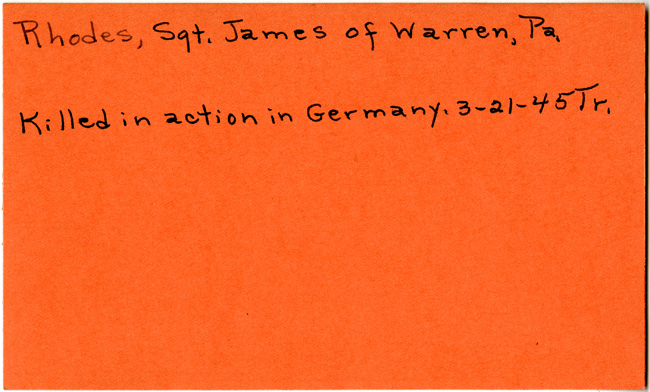 Rhodes, Sgt. James of Warren, Pa.
Killed in action in Germany. 3-21-45 Tr.